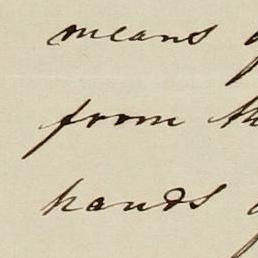 means
from th
hands